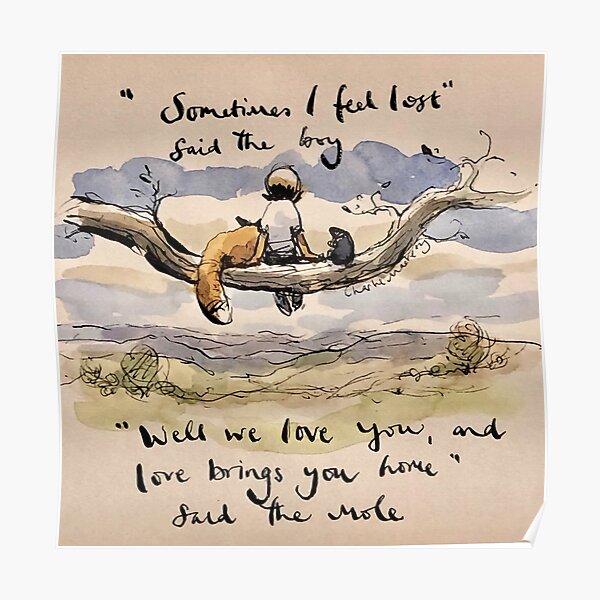 "Sometimes I feel lost"
said the boy
Charlie Mackesy
"Well we love you, and
love brings you home"
said the Mole